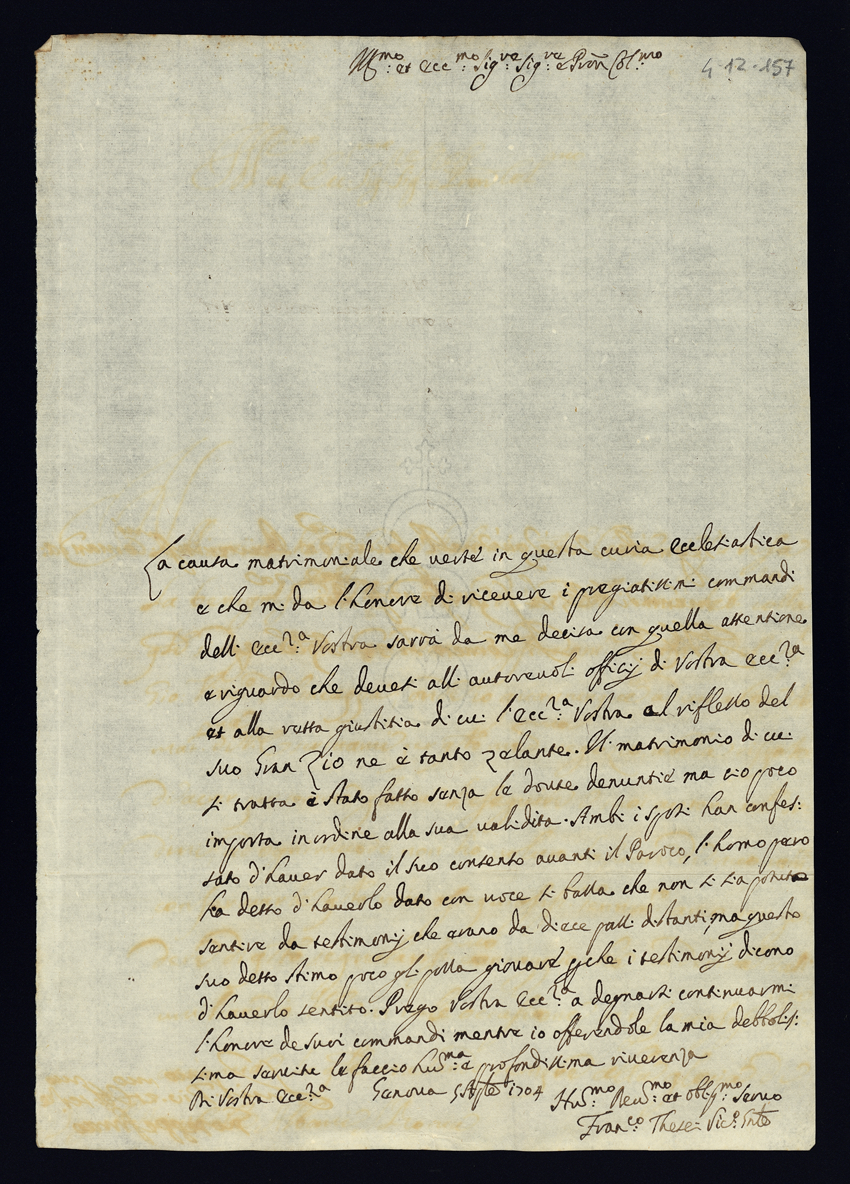 Ill.mo et Ecc.mo Sig.re Sig.re e Pron Col.mo
4-12-157
La causa matrimoniale che verte in questa curia ecclesiastica
e che mi da l'honore di ricevere i pregiatissimi commandi
dell' Ecc.za Vostra sarrà da me decisa con quella attentione
e riguardo che devesi alli autorevoli officij di Vostra Ecc.za
et alla retta giustitia di cui l'Ecc.za Vostra al riflesso del
suo Gran Zio ne è tanto zelante. Il matrimonio di cui
si tratta è stato fatto senza le dovute denuntie ma ciò poco
importa in ordine alla sua validita. Ambi i sposi han confes:
sato d'haver dato il suo consenso avanti il Paroco, l'homo però
ha detto d'haverlo dato con voce si bassa che non si sia potuto
sentire da testimonij che erano da diece passi distanti, ma questo
suo detto stimo poco gli possa giovare perche i testimonij dicono
d'haverlo sentito. Prego Vostra Ecc.za a degnarsi continuarmi
l'honore de suoi commandi mentre io offerendole la mia debbolis:
sima servitu le faccio hu.ma e profondissima riverenza
Di Vostra Ecc.za Genova 5 1704
Hu.mo Dev.mo et Obbl.mo Servo
Fran.co